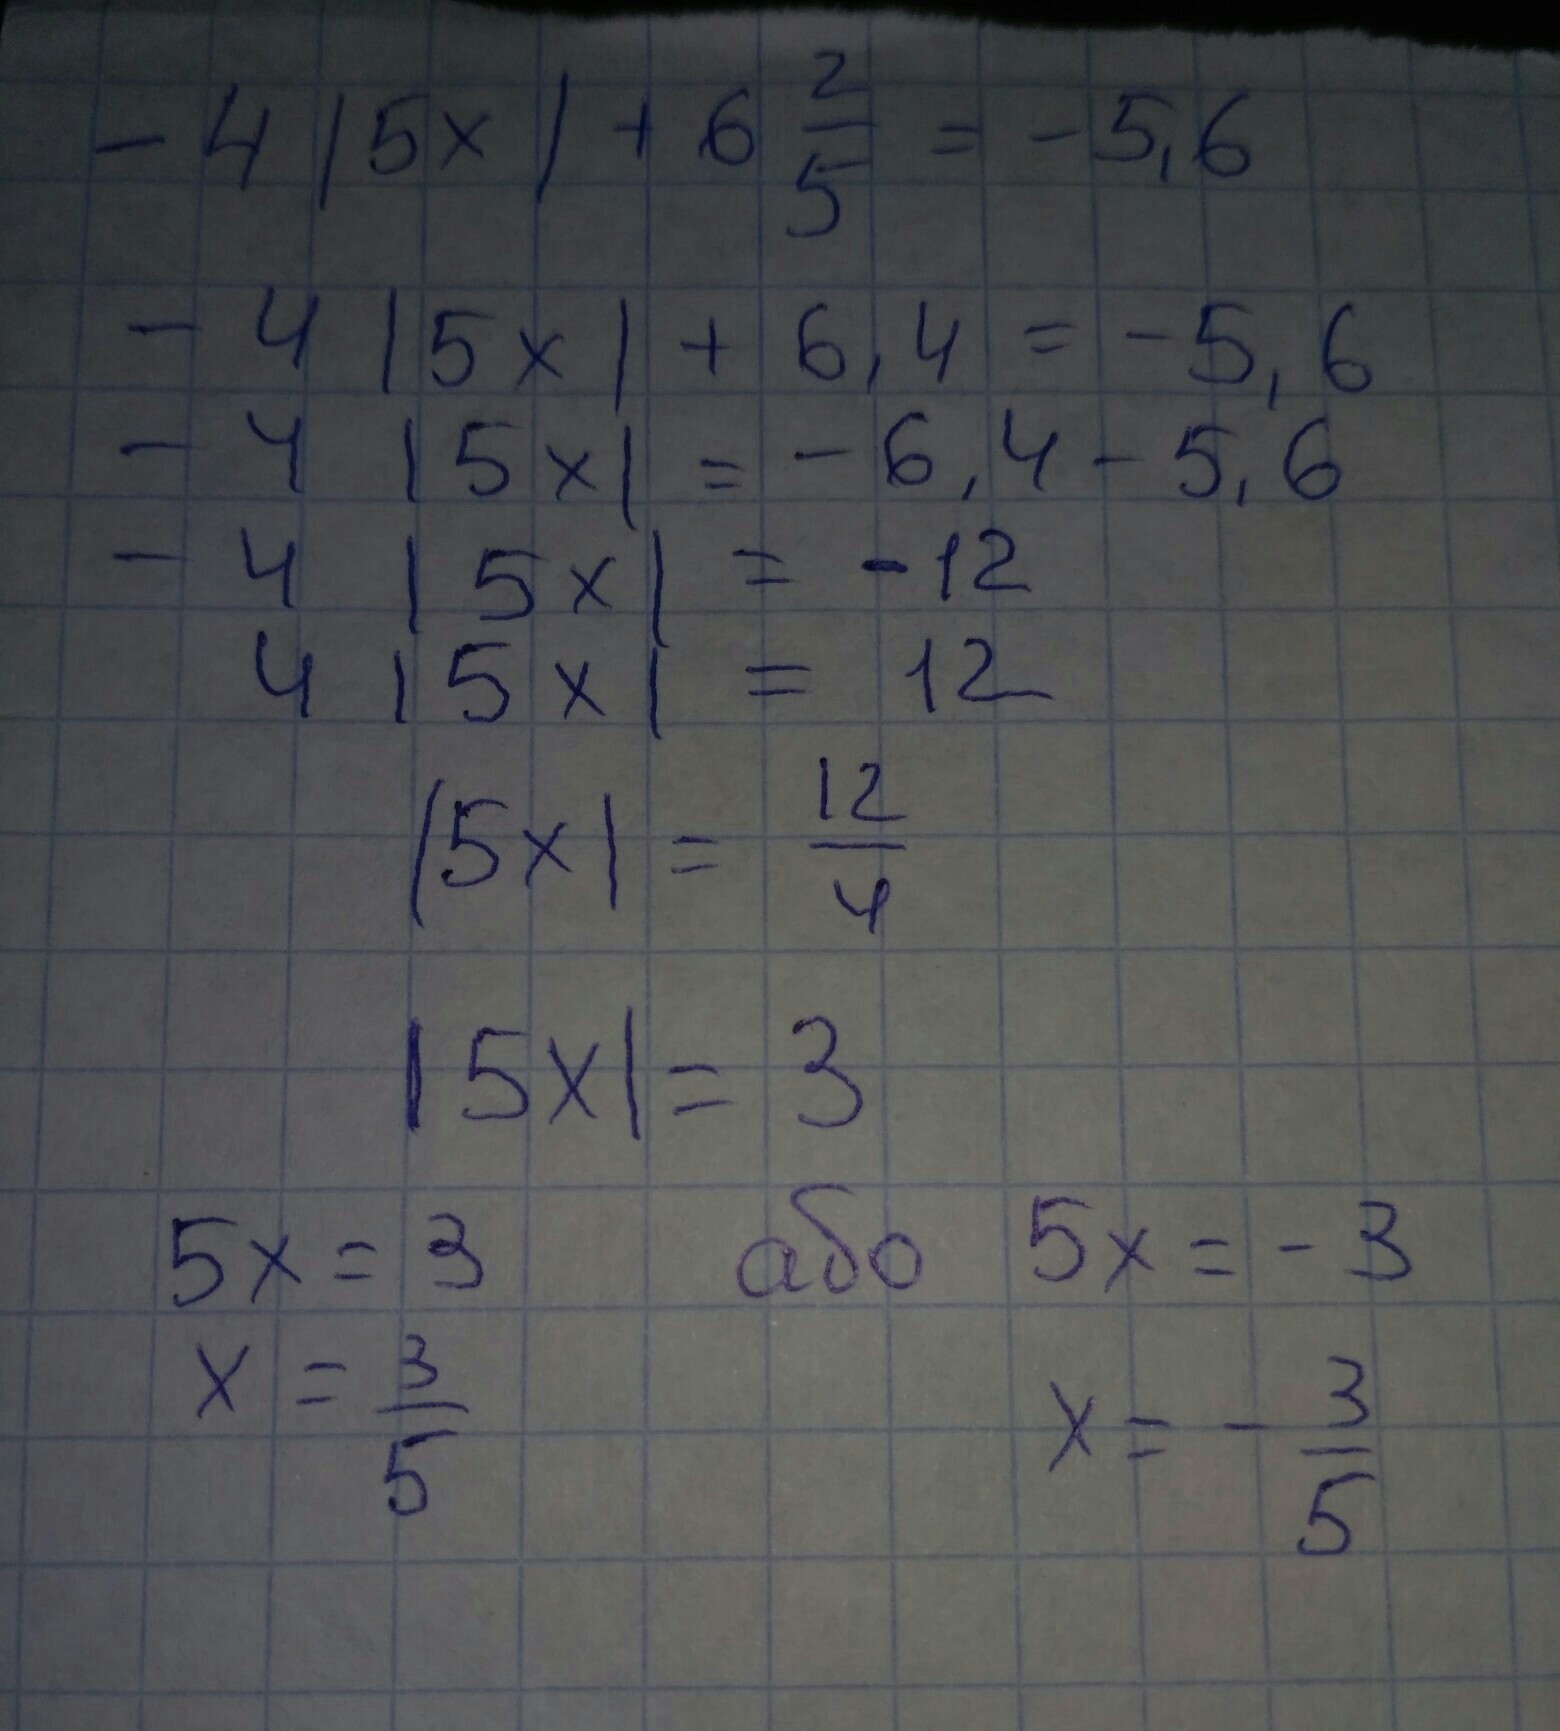 - 4 |5x| + 6 2/5 = - 5,6
- 4 |5x| + 6,4 = - 5,6
- 4 |5x| = - 6,4 - 5,6
- 4 |5x| = - 12
4 |5x| = 12
|5x| = 12/4
|5x| = 3
5x = 3 або 5x = - 3
x = 3/5 x = - 3/5